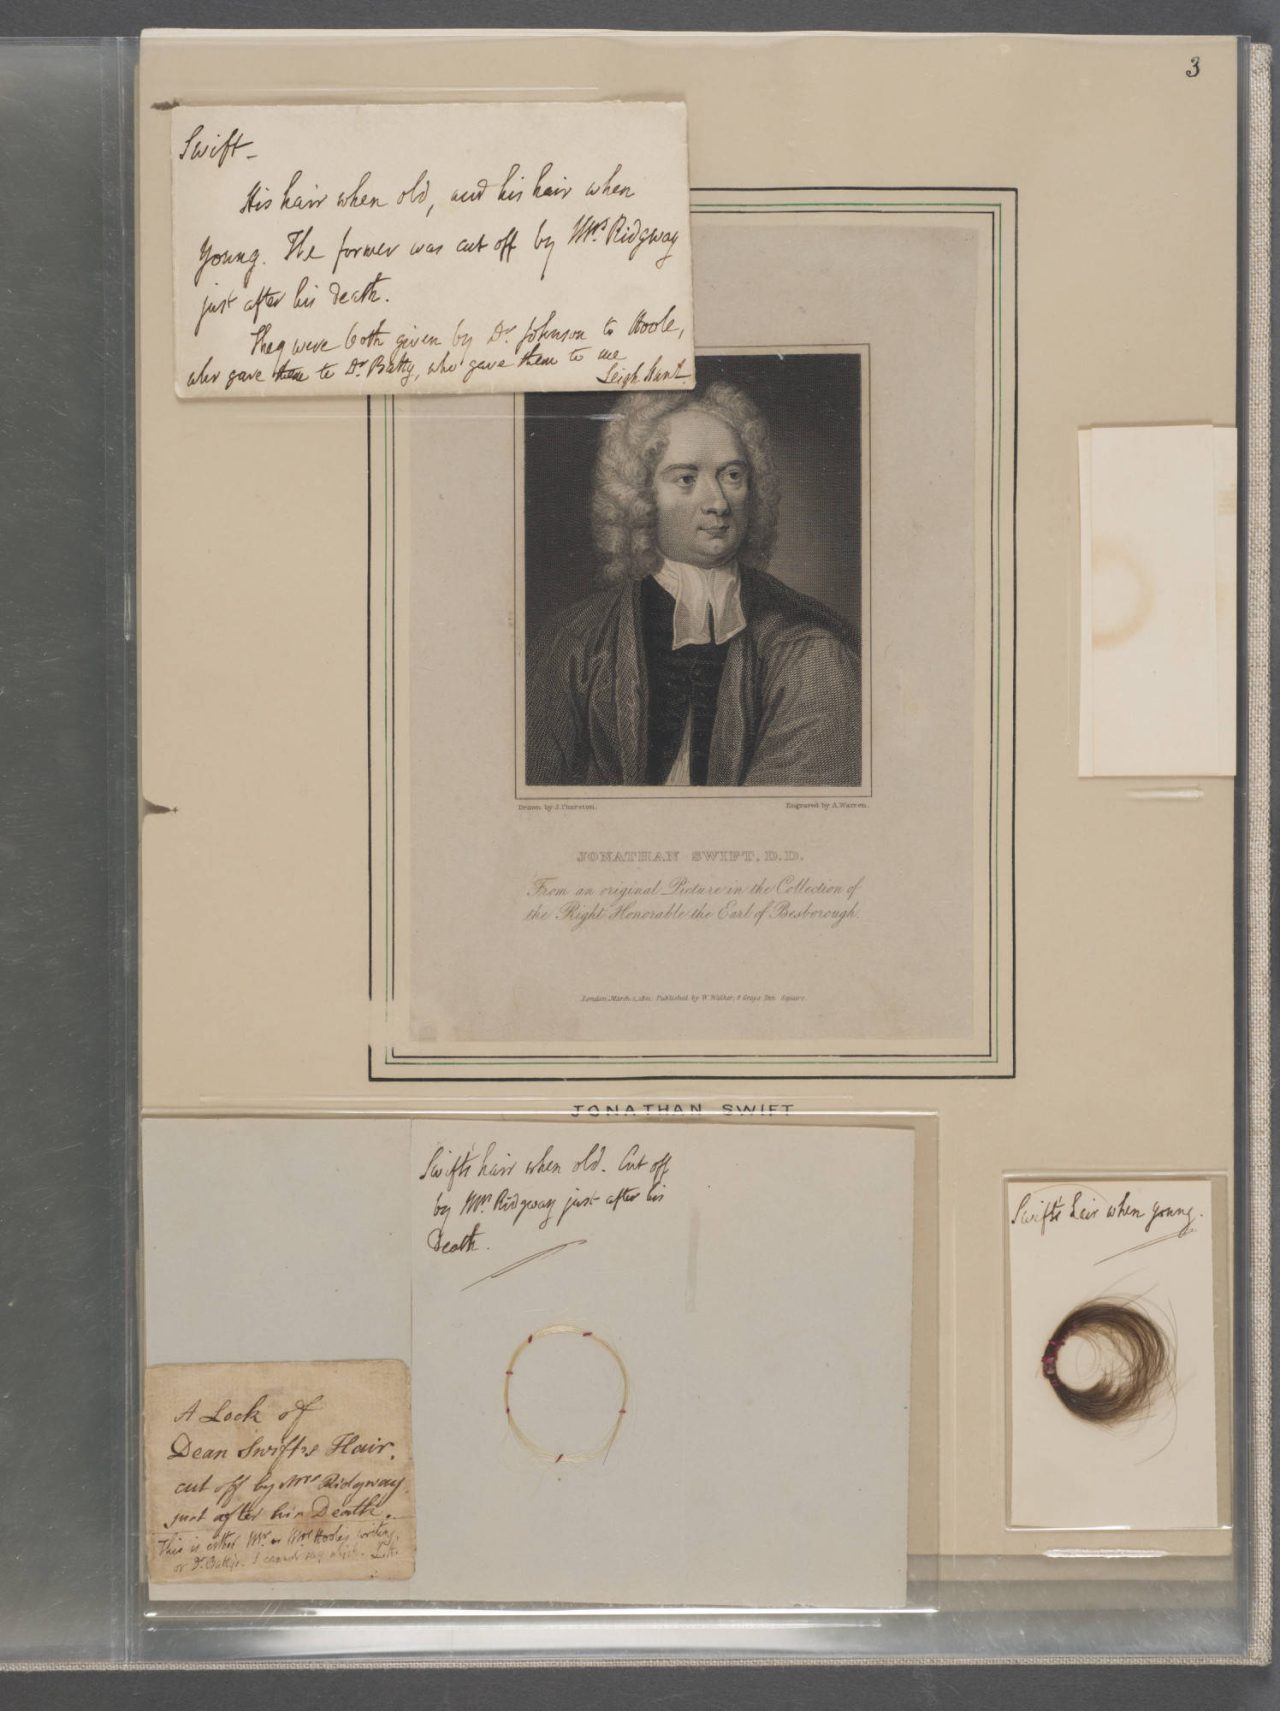 3
Swift—
His hair when old, and his hair when
young. The former was cut off by Mrs Ridgway
just after his death.
They were both given by Dr Johnson to Hoole,
who gave them to Dr Batty, who gave them to me
Leigh Hunt.
Drawn by J. Thurston.
Engraved by A. Warren.
JONATHAN SWIFT, D.D.
From an original Picture in the Collection of
the Right Honorable the Earl of Besborough.
London, March 1, Published by W. Walker, 8 Grays Inn Square.
JONATHAN SWIFT
Swift's hair when old. Cut off
by Mrs Ridgway just after his
death.
Swift's hair when young.
A Lock of
Dean Swift's Hair.
cut off by Mrs Ridgway
just after his Death.
This is either Mr or Mrs Hoole's writing,
or Dr Batty's. I cannot say which. L.H.